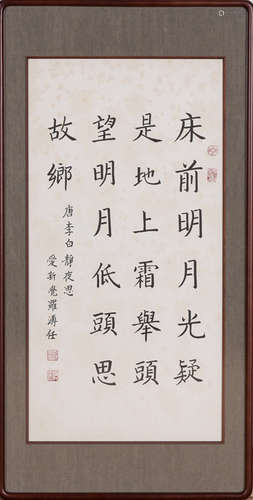 床前明月光疑
是地上霜舉頭
望明月低頭思
故鄉
唐李白靜夜思
愛新覺羅溥任